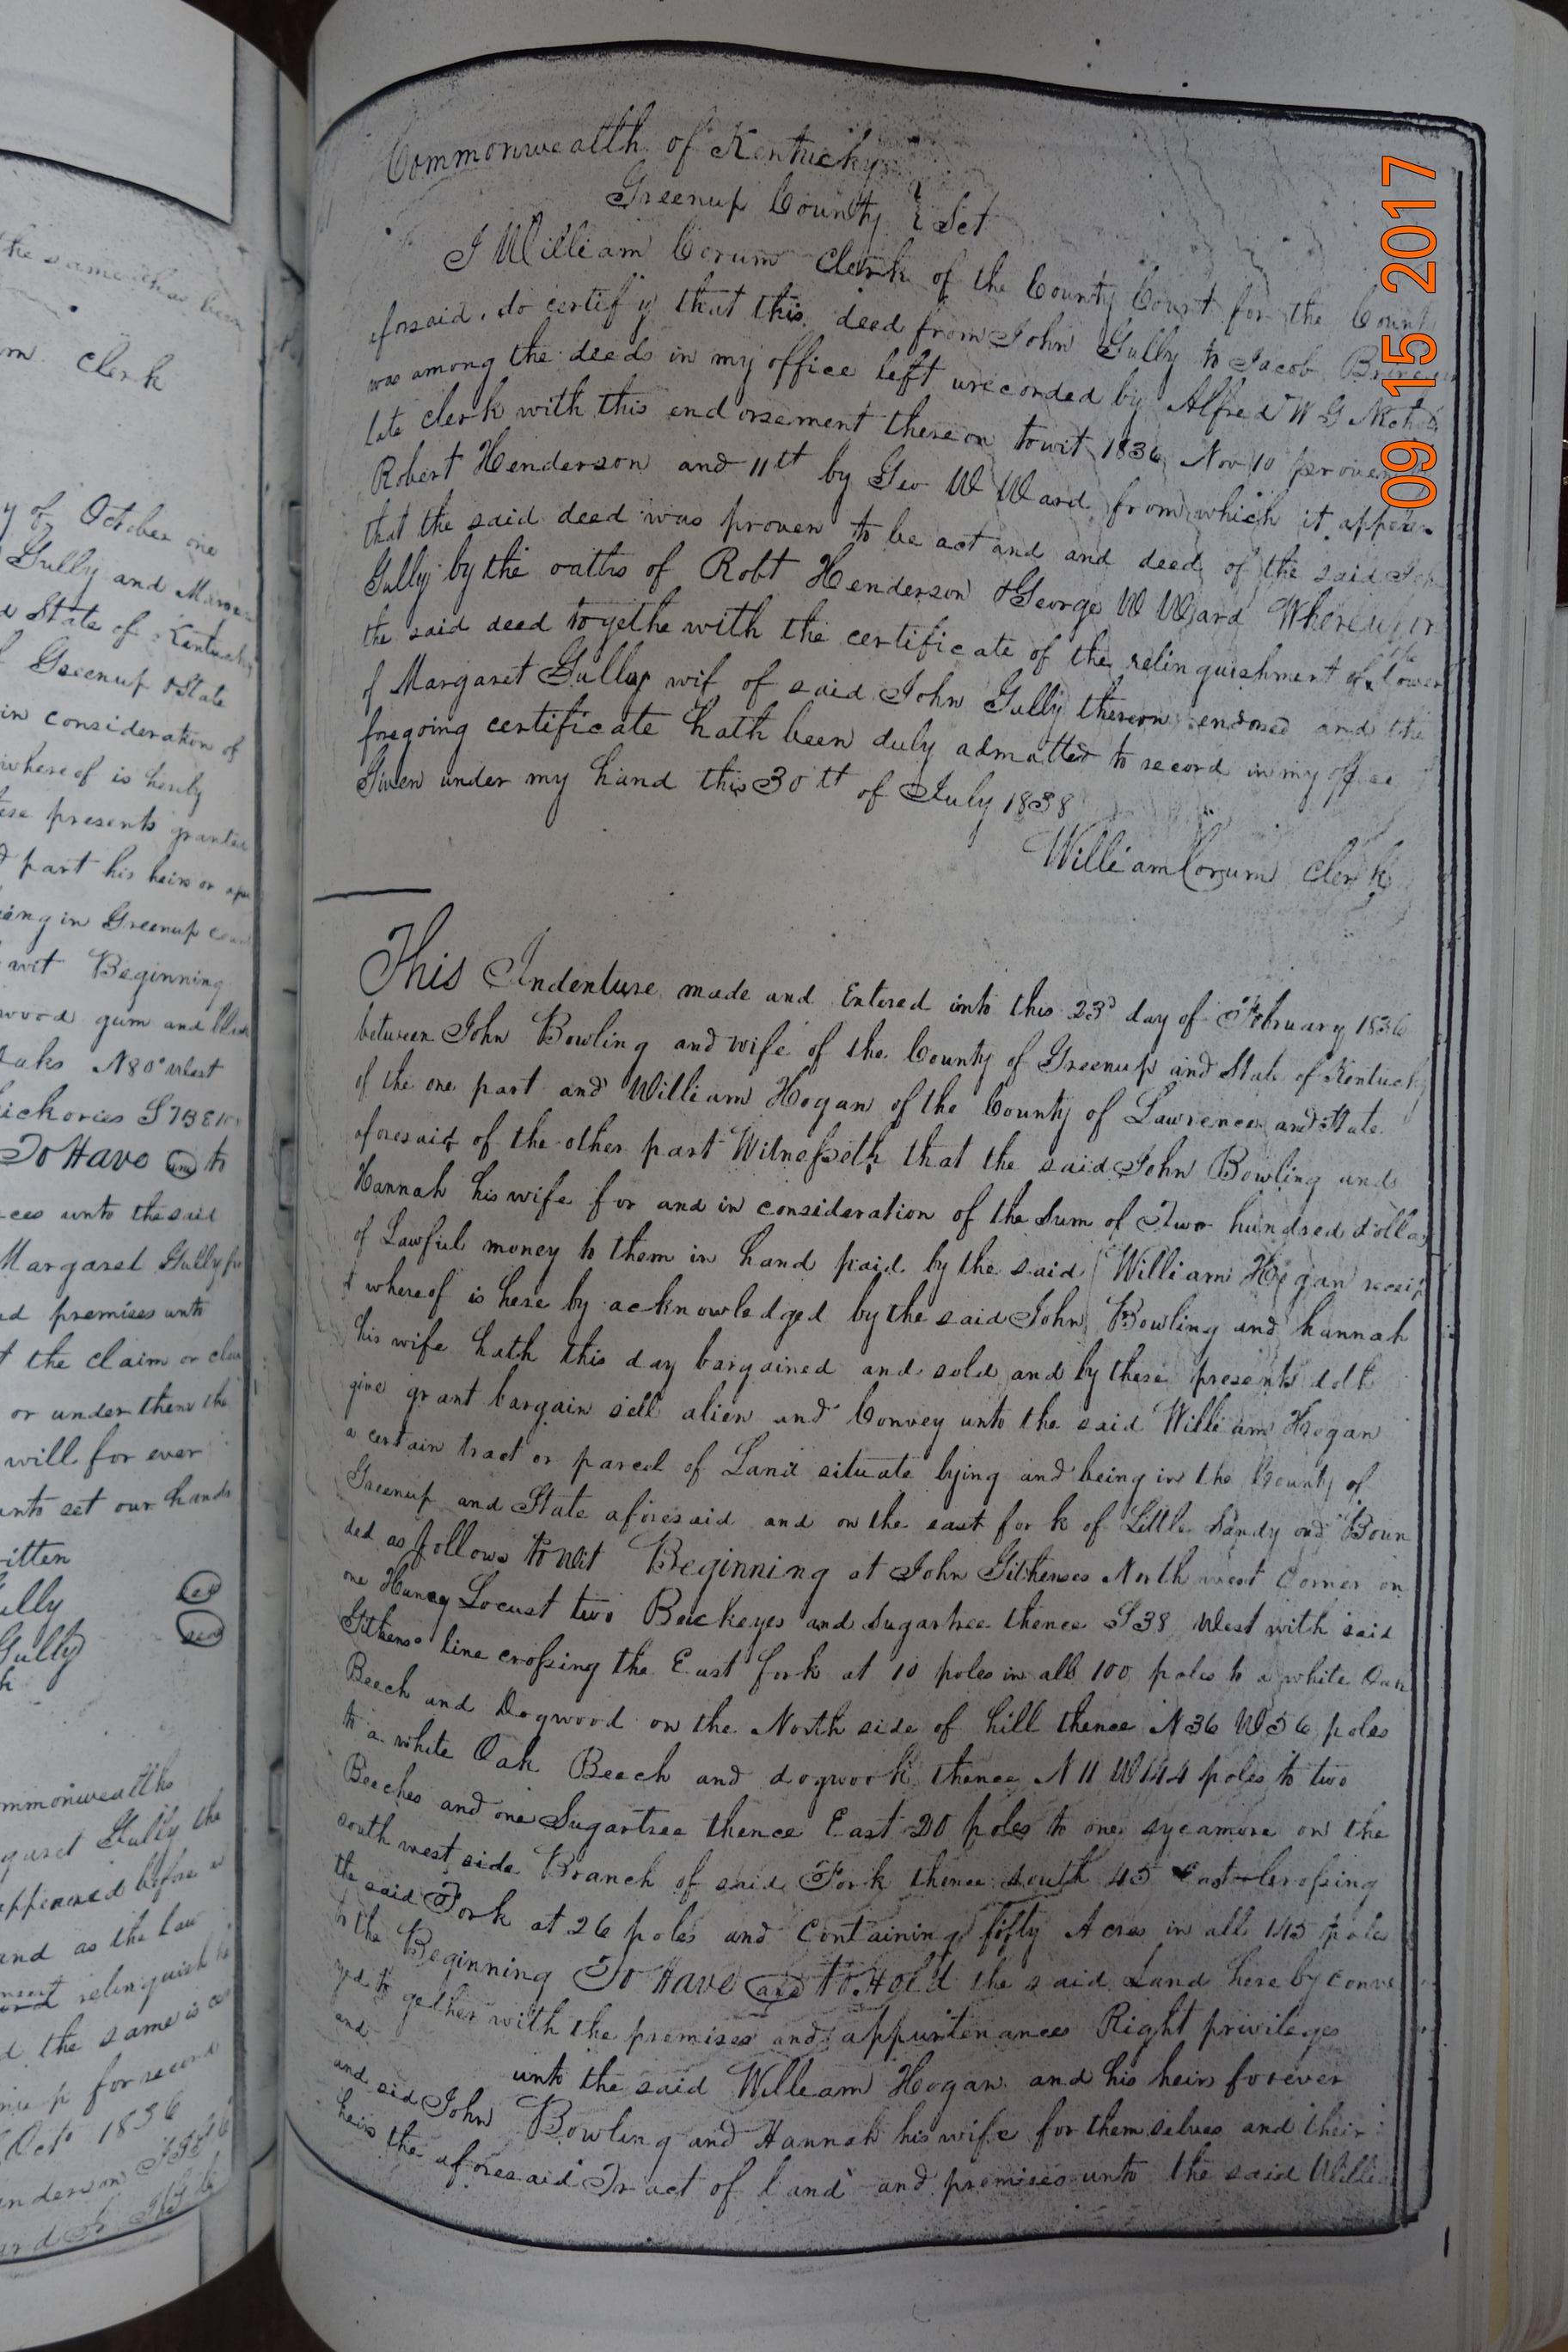 the same has been
m. Clerk
y of October one
Gully and
d State of Kentucky
Greenup & State
in consideration of
whereof is hereby
ese presents granted
d part his heirs or
being in Greenup
wit Beginning
wood gum and
oaks N80° West
hickories
To Have and to
ces unto the said
Margaret Gully for
ed premises unto
t the claim or
or under them the
will for ever
unto set our hands
ritten
ully
Gully
mmonwealths
garet Gully the
appeared before
and as the law
relinquish
d the same is
for record
Oct 1836
Commonwealth of Kentucky
Greenup County } Sct
I William Corum Clerk of the County Court for the County
aforesaid, do certify that this deed from John Gully to Jacob
was among the deeds in my office left urecorded by Alfred W G
late clerk with this endorsement thereon towit 1836 Nov 10 proven
Robert Henderson and 11th by Geo W Ward from which it
that the said deed was proven to be act and and deed of the said
Gully by the oaths of Robt Henderson & George W Ward Whereupon
the said deed togethe with the certificate of the relinquishment of the dower
of Margaret Gully wif of said John Gully thereon endorsed and the
foregoing certificate hath been duly admatted to record in my office
Given under my hand this 30th of July 1838
William Corum Clerk
This Indenture made and Entered into this 23d day of February 1836
between John Bowling and wife of the County of Greenup and State of Kentucky
of the one part and William Hogan of the County of Lawrence and State
aforesaid of the other part Witnesseth that the said John Bowling and
Hannah his wife for and in consideration of the Sum of Two hundred dollas
of Lawful money to them in hand paid by the said William Hogan receip
t whereof is here by acknowledged by the said John Bowling and hannah
his wife hath this day bargained and sold and by these presents doth
give grant bargain sell alien and Convey unto the said William Hogan
a certain tract or parcel of Land situate lying and being in the County of
Greenup and State aforesaid and on the east fork of Little Sandy and Boun
ded as follows to wit Beginning at John Githenses North west Corner on
one Huney Locust two Buckeyes and Sugartree thence S38 West with said
Githens line crossing the East fork at 10 poles in all 100 poles to a white Oak
Beech and Dogwood on the North side of hill thence N36 W56 poles
to a white Oak Beech and dogwood thence N11 W144 poles to two
Beeches and one Sugartree thence East 20 poles to one sycamore on the
south west side Branch of said Fork thence south 45 East Crossing
the said Fork at 26 poles and Containing fifty Acres in all 145 poles
to the Beginning To Have and to Hold the said Land here by conve
yed to gether with the premises and appurtenances Right privileges
and unto the said William Hogan and his heirs forever
and said John Bowling and Hannah his wife for themselves and their
heirs the aforesaid Tract of land and premises unto the said Willia
09 15 2017